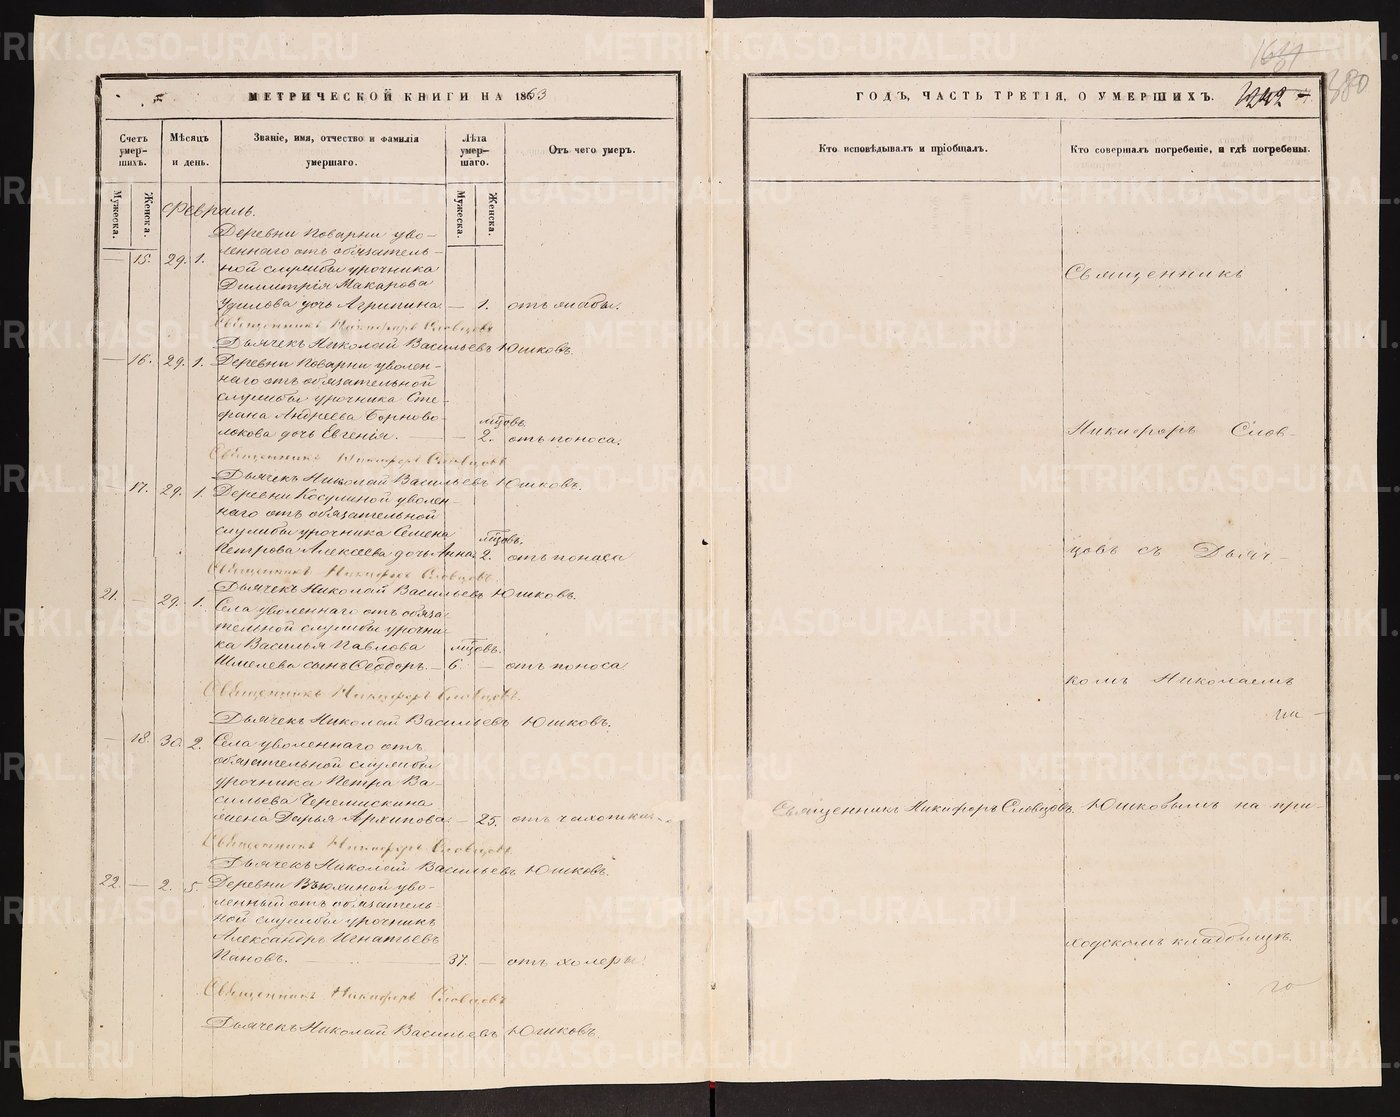 МЕТРИЧЕСКОЙ КНИГИ НА 1863
Счетъ умер-шихъ.
Мѣсяцъ и день.
Званіе, имя, отчество и фамилія умершаго.
Лѣта умер-шаго.
Отъ чего умеръ.
Мужеска.
Женска.
Мужеска.
Женска.
Февраль.
Деревни Поварни уво-
леннаго отъ обязатель-
— 15. 29. 1. ной службы урочника
Димитрія Макарова
Удилова дочь Агрипина — 1. отъ жабы.
Священникъ Никифоръ Словцовъ
Дьячекъ Николай Васильевъ Юшковъ.
— 16. 29. 1. Деревни Поварни уволен-
наго отъ обязательной
службы урочника Сте-
фана Андреева Борново-
мѣсцовъ
локова дочь Евгенія. — — 2. отъ поноса.
Священникъ Никифоръ Словцовъ
Дьячекъ Николай Васильевъ Юшковъ.
— 17. 29. 1. Деревни Косулиной уволен-
наго отъ обязательной
службы урочника Семена
мѣсцовъ.
Петрова Алексеева дочь Анна 2. отъ поноса
Священникъ Никифоръ Словцовъ.
Дьячекъ Николай Васильевъ Юшковъ.
21. — 29. 1. Села уволеннаго отъ обяза-
тельной службы урочни-
ка Василья Павлова мѣсцовъ.
Шмелева сынъ Ѳеодоръ. — 6 — отъ поноса
Священникъ Никифоръ Словцовъ
Дьячекъ Николай Васильевъ Юшковъ.
— 18. 30. 2. Села уволеннаго отъ
обязательной службы
урочника Петра Ва-
сильева Черемискина
жена Дарья Архипова. — 25. отъ чахотки
Священникъ Никифоръ Словцовъ
Дьячекъ Николай Васильевъ Юшковъ.
22. — 2. 5. Деревни Вьюхиной уво-
ленный отъ обязатель-
ной службы урочникъ
Александръ Игнатьевъ
Пановъ. — 37. — отъ холеры.
Священникъ Никифоръ Словцовъ
Дьячекъ Николай Васильевъ Юшковъ.
ГОДЪ, ЧАСТЬ ТРЕТІЯ, О УМЕРШИХЪ.
380
Кто исповѣдывалъ и пріобщалъ.
Кто совершалъ погребеніе, и гдѣ погребены.
Священникъ
Никифоръ Слов-
цовъ съ Дьяч-
комъ Николаемъ
Священникъ Никифоръ Словцовъ. Юшковымъ на при-
ходскомъ кладбищѣ.
METRIKI.GASO-URAL.RU